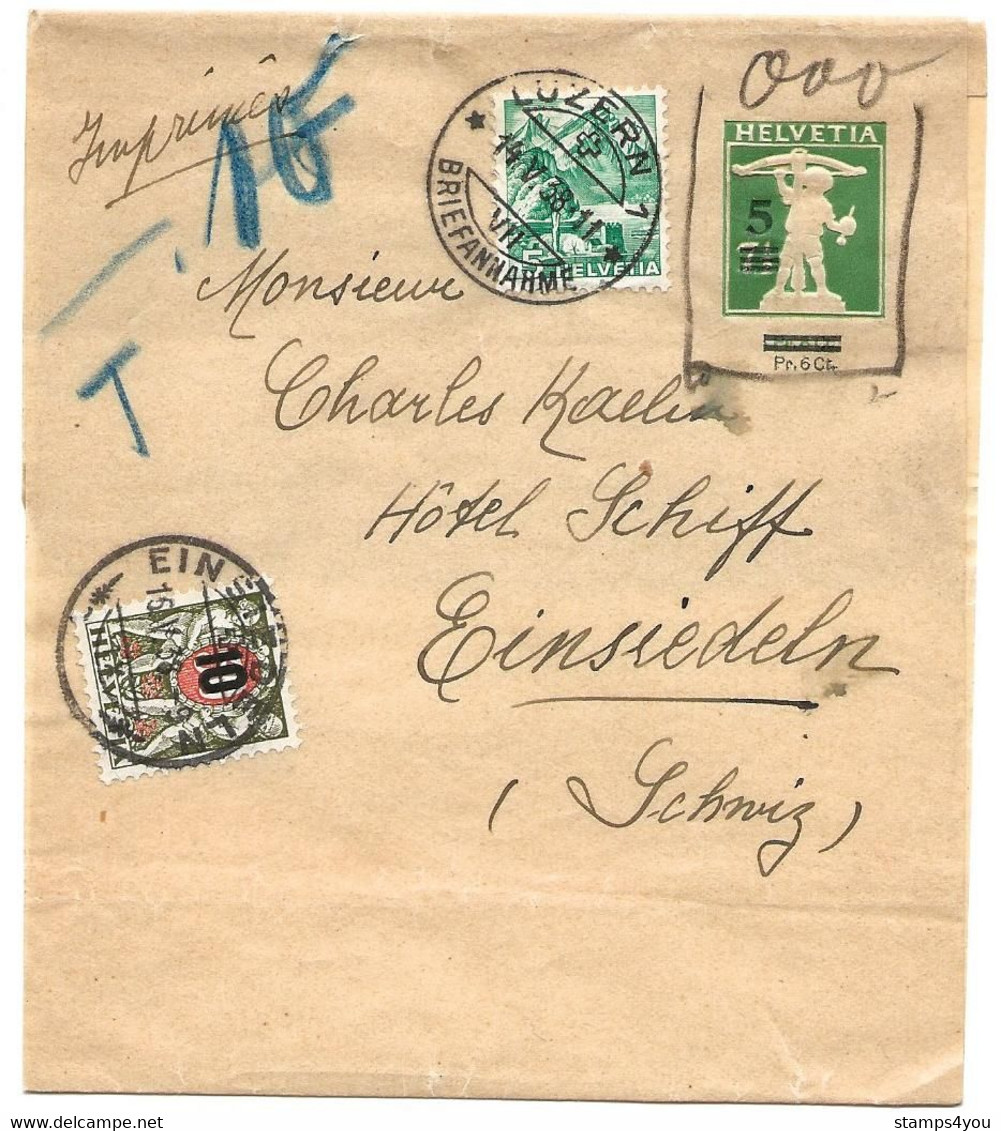 Imprimés
-.10
T
LUZERN 1
14.V.38-11
VIII
BRIEFANNAHME
5 HELVETIA
000
HELVETIA
5
Pr. 6 Ct.
Monsieur
Charles Kaelin
Hôtel Schiff
Einsiedeln
(Schwiz)
EINSIEDELN
10
HELVETIA
stamps4you